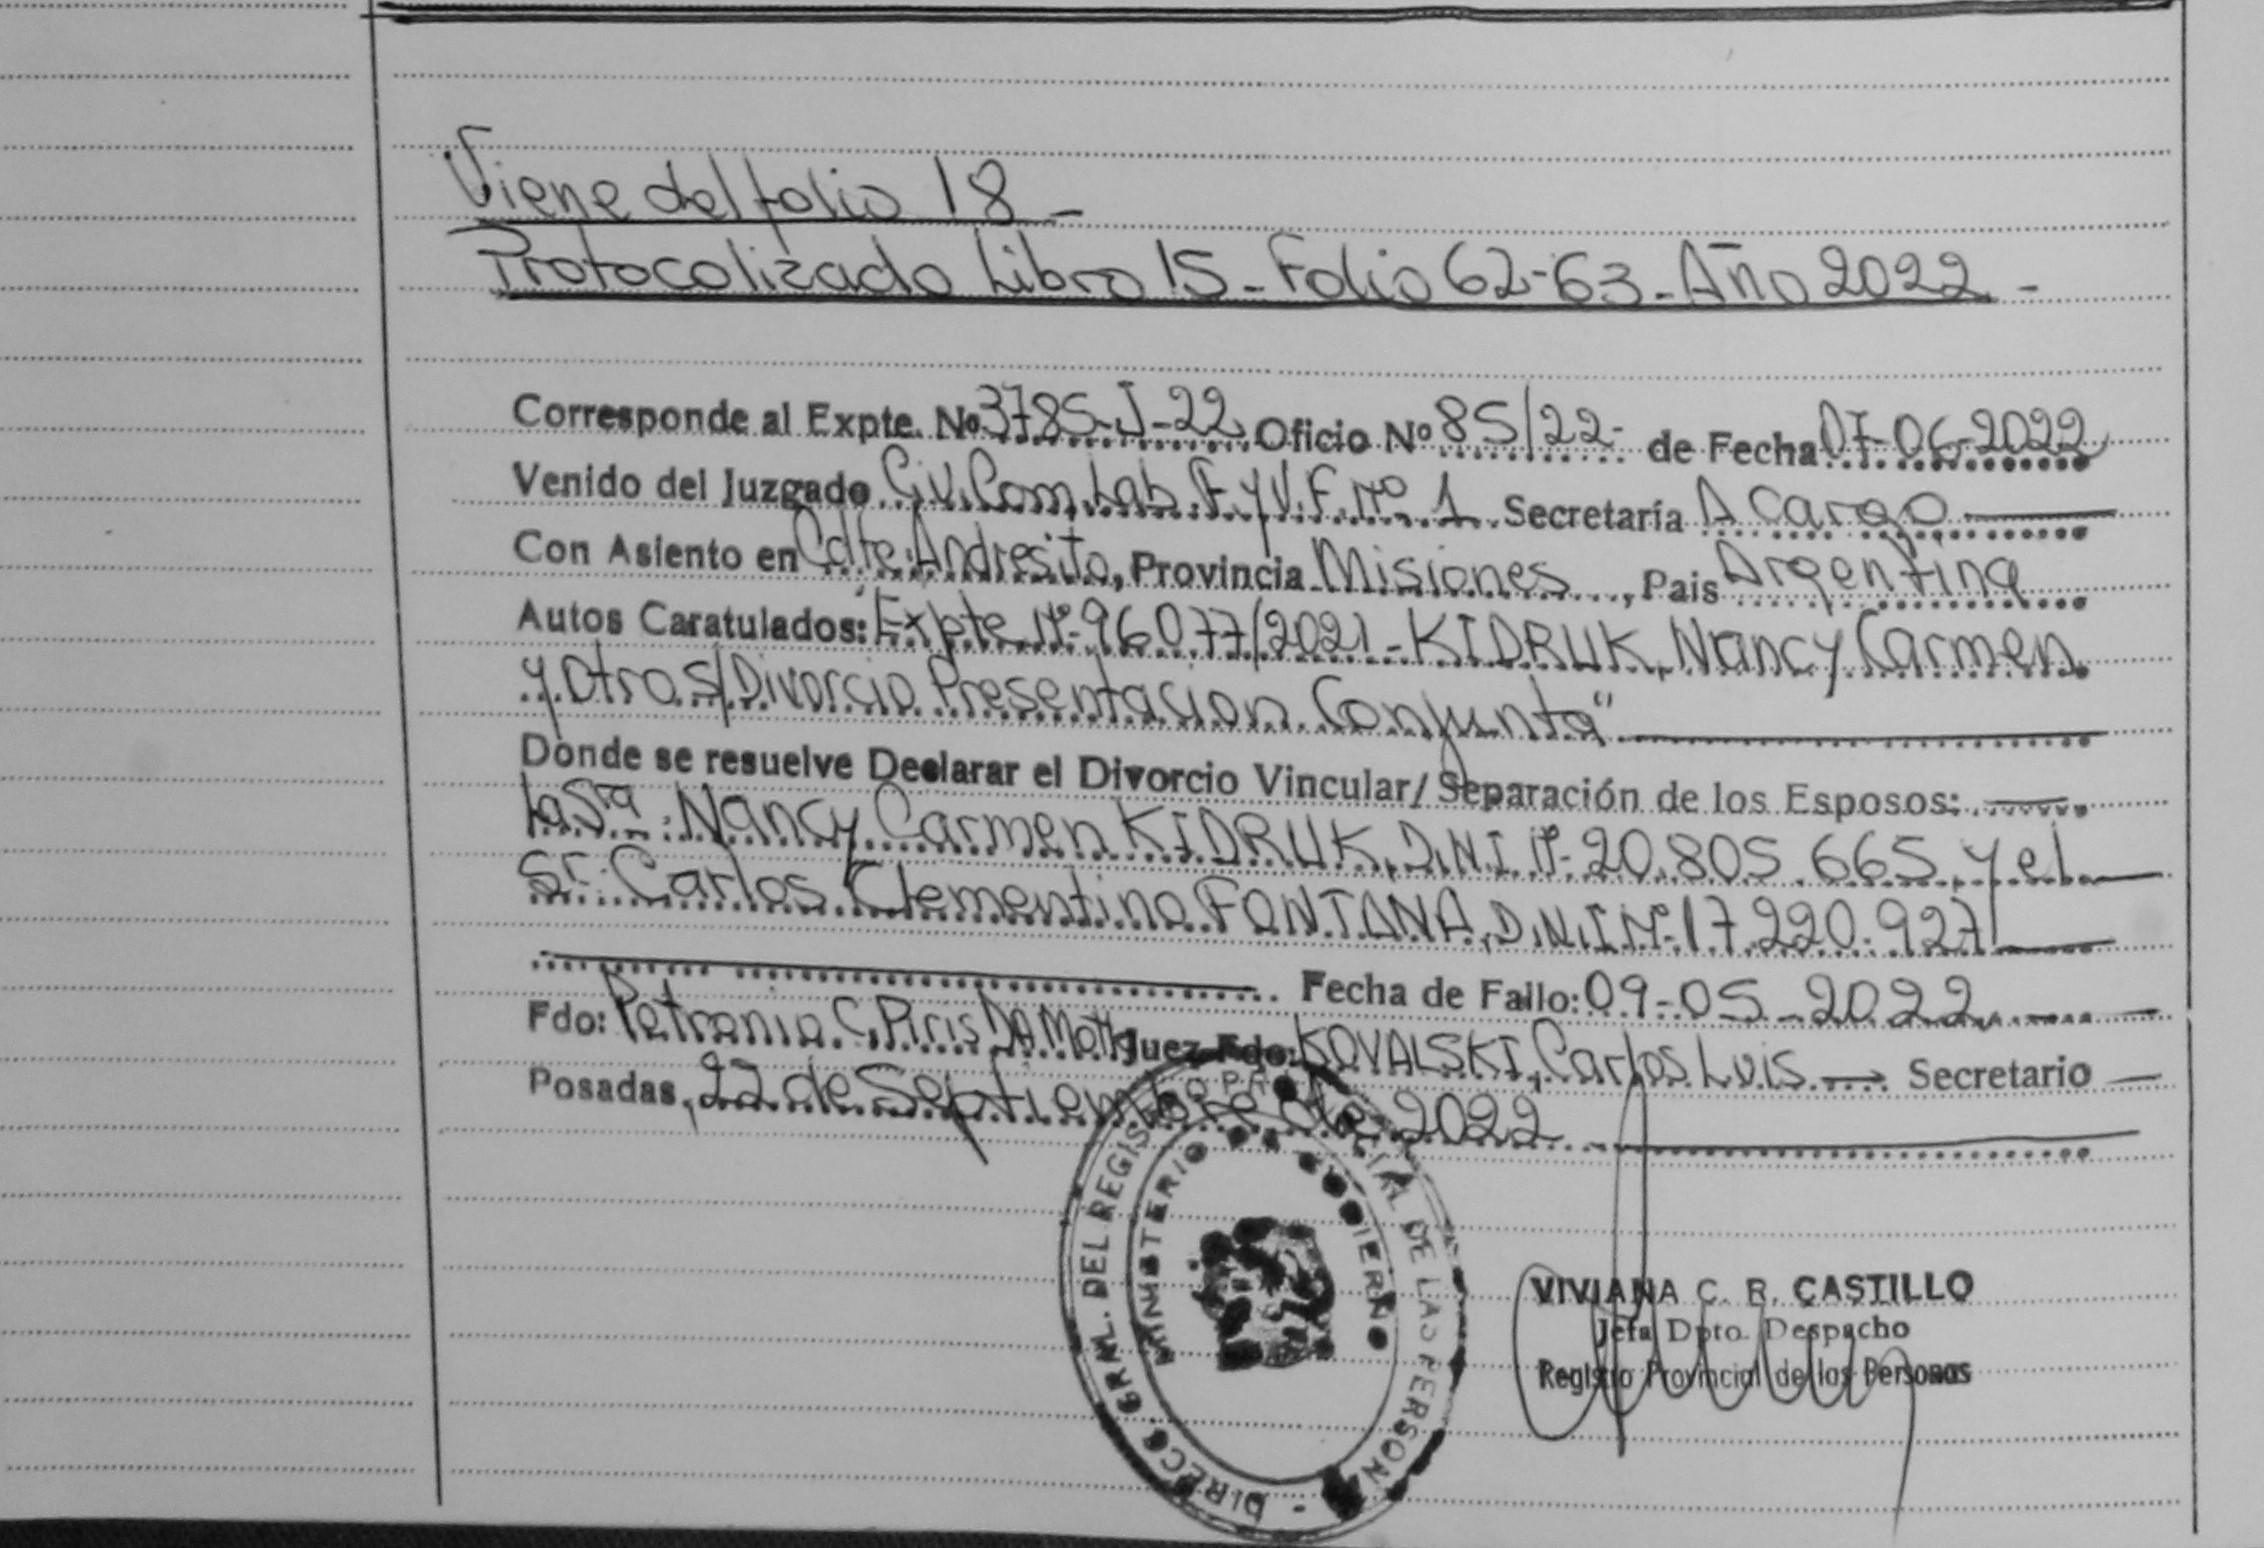 Viene del folio 18 -
Protocolizado Libro 15 - Folio 62-63 - Año 2022 -
Corresponde al Expte. Nº 3785-J-22 Oficio Nº 85/22- de Fecha 07-06-2022
Venido del Juzgado Civ. Com. Lab. F. y V. F. Nº 1 Secretaría A Cargo
Con Asiento en Cdte. Andresito, Provincia Misiones, Pais Argentina
Autos Caratulados: "Expte Nº 96077/2021 - KIDRUK, Nancy Carmen
y Otro S/ Divorcio Presentacion Conjunta"
Donde se resuelve Declarar el Divorcio Vincular/ Separación de los Esposos:
la Sra. Nancy Carmen KIDRUK, D.N.I. Nº 20.805.665 y el
Sr. Carlos Clementino FONTANA, D.N.I Nº 17.220.927
Fecha de Fallo: 09-05-2022
Fdo: Petrona C. Piris Da Motta Juez Fdo: KOVALSKI, Carlos Luis Secretario
Posadas, 22 de Septiembre de 2022
DIRECC. GRAL. DEL REGISTRO PROVINCIAL DE LAS PERSONAS
MINISTERIO DE GOBIERNO
VIVIANA C. R. CASTILLO
Jefa Dpto. Despacho
Registro Provincial de las Personas